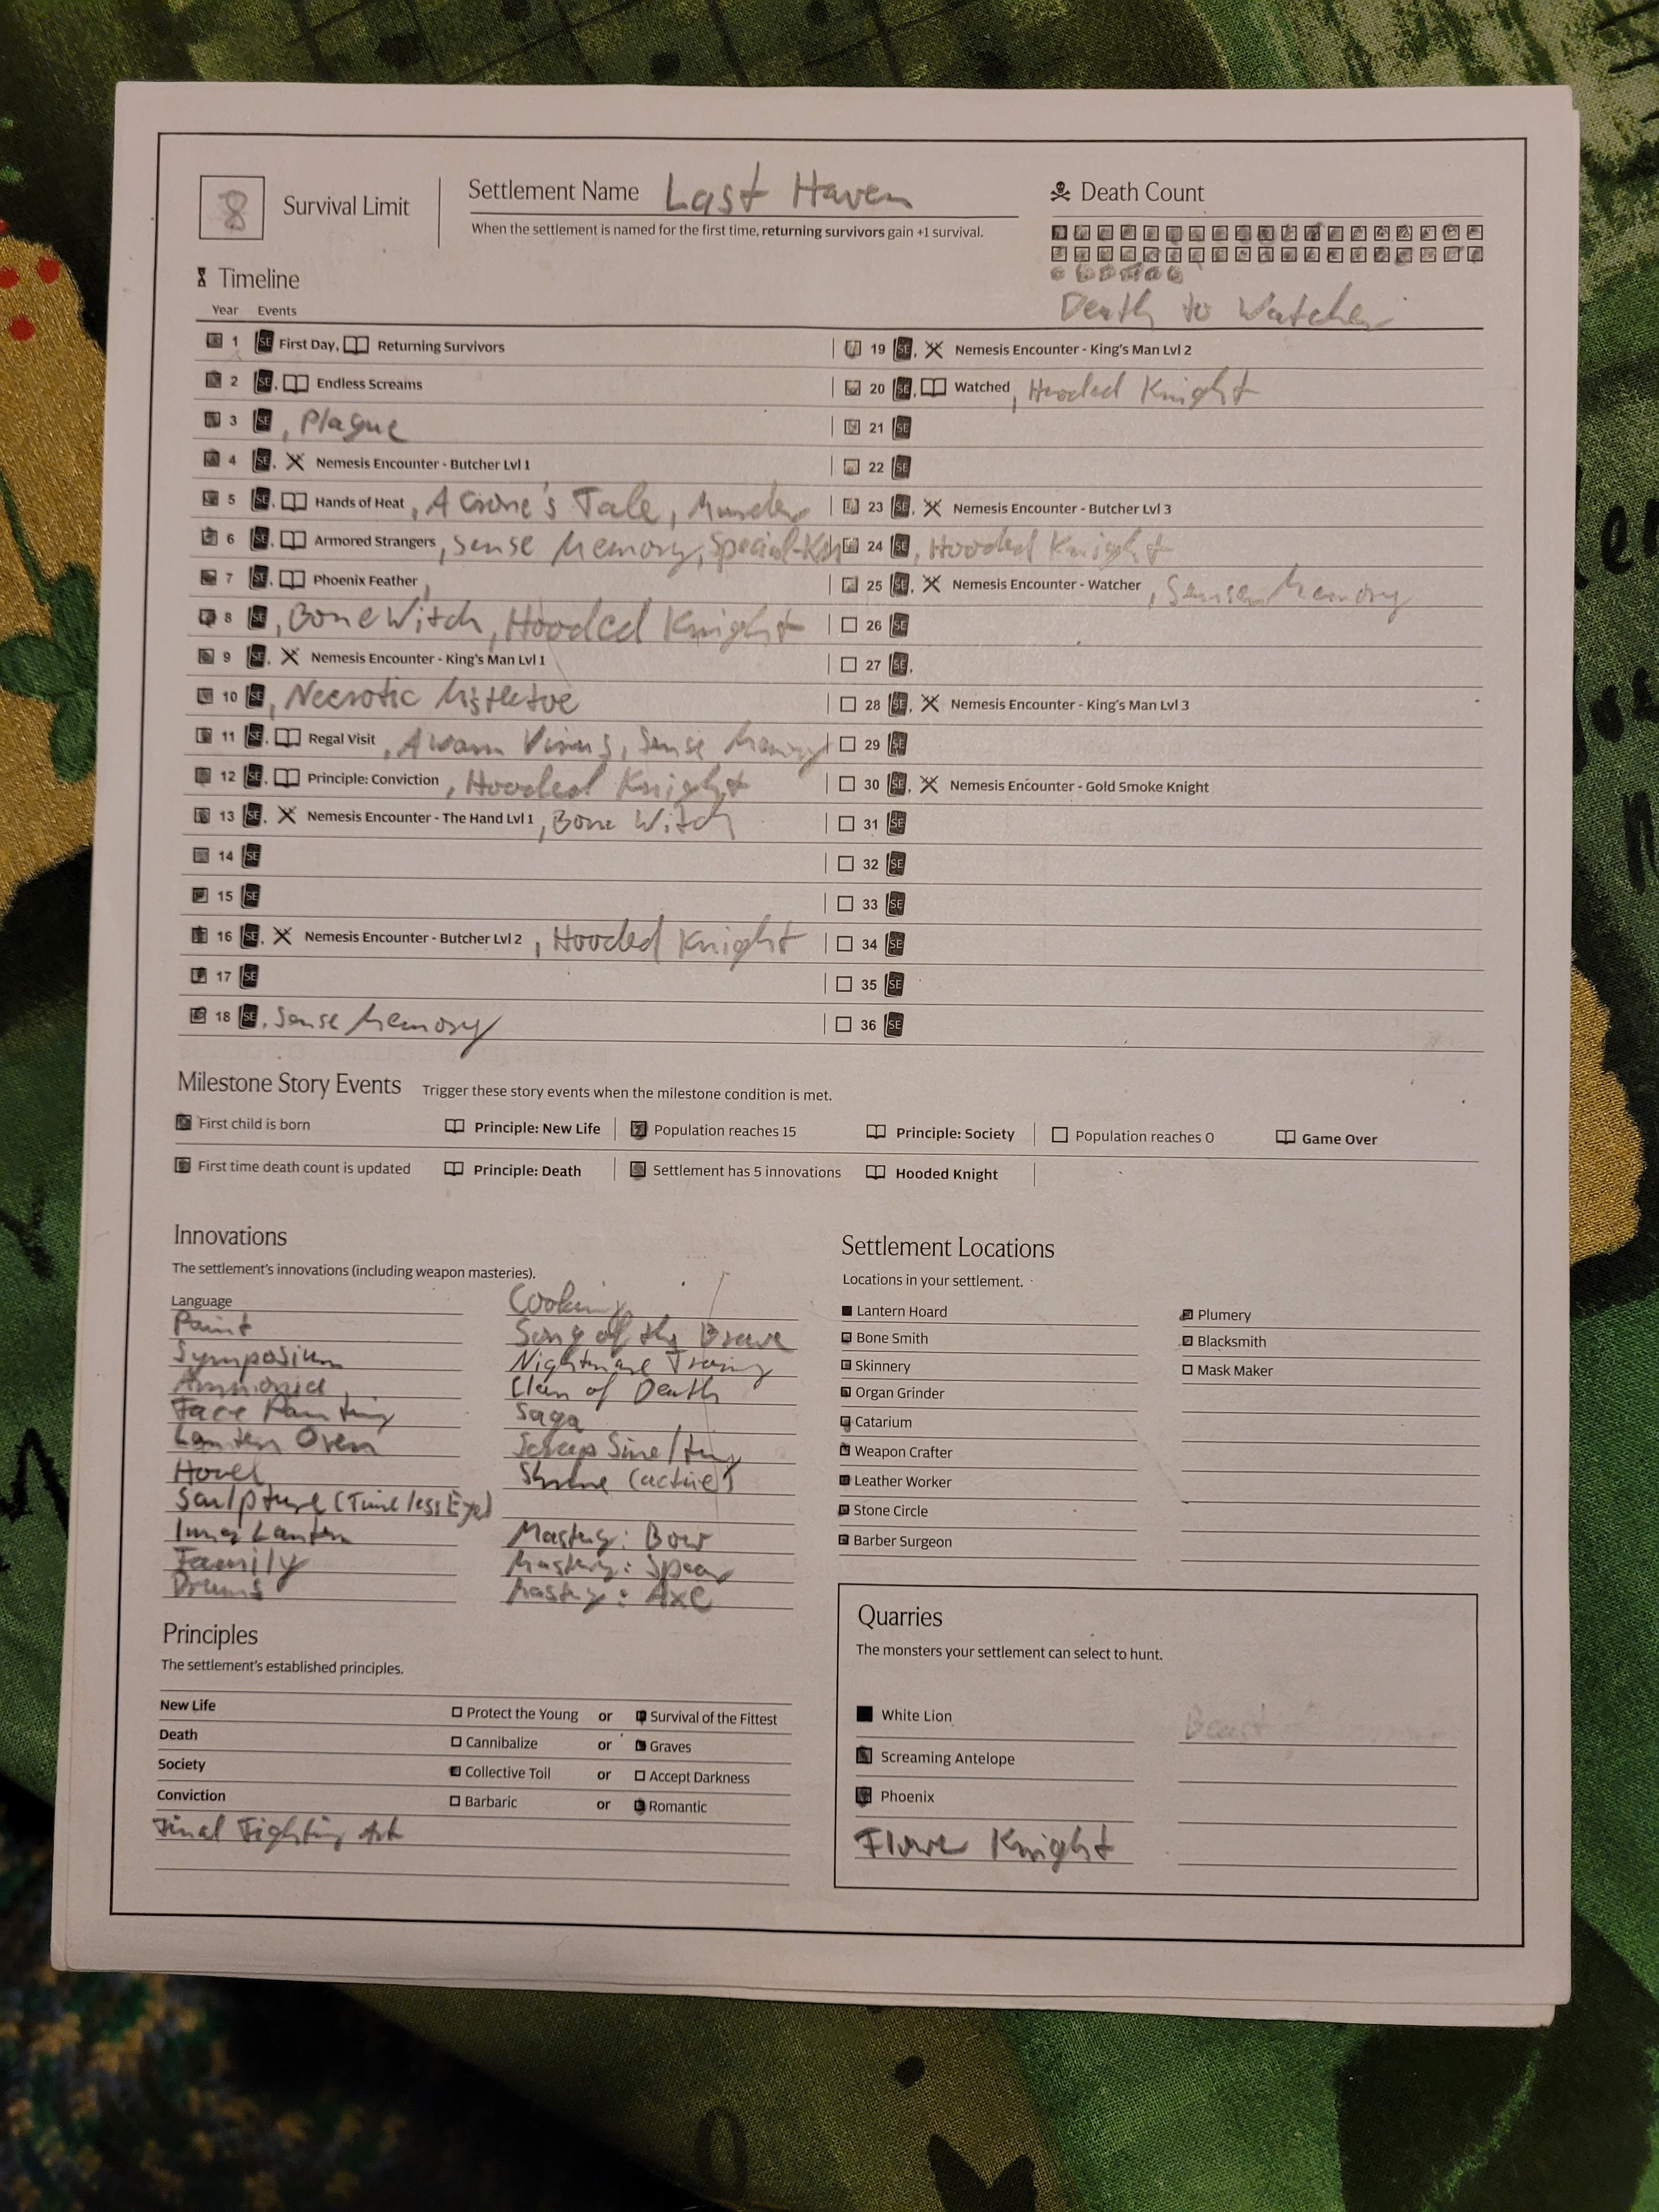 8 Survival Limit
Settlement Name Last Haven
When the settlement is named for the first time, returning survivors gain +1 survival.
Death Count
Death to Watcher
Timeline
Year Events
1 SE First Day, Returning Survivors
2 SE, Endless Screams
3 SE, Plague
4 SE, Nemesis Encounter - Butcher Lvl 1
5 SE, Hands of Heat, A Crone's Tale, Murder
6 SE, Armored Strangers, Sense Memory, Special-
7 SE, Phoenix Feather,
8 SE, Bone Witch, Hooded Knight
9 SE, Nemesis Encounter - King's Man Lvl 1
10 SE, Necrotic Mistletoe
11 SE, Regal Visit, A warm Virus, Sense Memory
12 SE, Principle: Conviction, Hooded Knight
13 SE, Nemesis Encounter - The Hand Lvl 1, Bone Witch
14 SE
15 SE
16 SE, Nemesis Encounter - Butcher Lvl 2, Hooded Knight
17 SE
18 SE, Sense Memory
19 SE, Nemesis Encounter - King's Man Lvl 2
20 SE, Watched, Hooded Knight
21 SE
22 SE
23 SE, Nemesis Encounter - Butcher Lvl 3
24 SE, Hooded Knight
25 SE, Nemesis Encounter - Watcher, Sense Memory
26 SE
27 SE,
28 SE, Nemesis Encounter - King's Man Lvl 3
29 SE
30 SE, Nemesis Encounter - Gold Smoke Knight
31 SE
32 SE
33 SE
34 SE
35 SE
36 SE
Milestone Story Events Trigger these story events when the milestone condition is met.
First child is born Principle: New Life Population reaches 15 Principle: Society Population reaches 0 Game Over
First time death count is updated Principle: Death Settlement has 5 innovations Hooded Knight
Innovations
The settlement's innovations (including weapon masteries).
Language
Paint
Symposium
Ammonia
Face Painting
Lantern Oven
Hovel
Sculpture (Timeless Eye)
Inner Lantern
Family
Drums
Cooking
Song of the Brave
Nightmare Training
Clan of Death
Saga
Scrap Smelting
Shrine (active)
Mastery: Bow
Mastery: Spear
Mastery: Axe
Principles
The settlement's established principles.
New Life Protect the Young or Survival of the Fittest
Death Cannibalize or Graves
Society Collective Toil or Accept Darkness
Conviction Barbaric or Romantic
Final Fighting Art
Settlement Locations
Locations in your settlement.
Lantern Hoard
Bone Smith
Skinnery
Organ Grinder
Catarium
Weapon Crafter
Leather Worker
Stone Circle
Barber Surgeon
Plumery
Blacksmith
Mask Maker
Quarries
The monsters your settlement can select to hunt.
White Lion
Screaming Antelope
Phoenix
Flower Knight
Beast